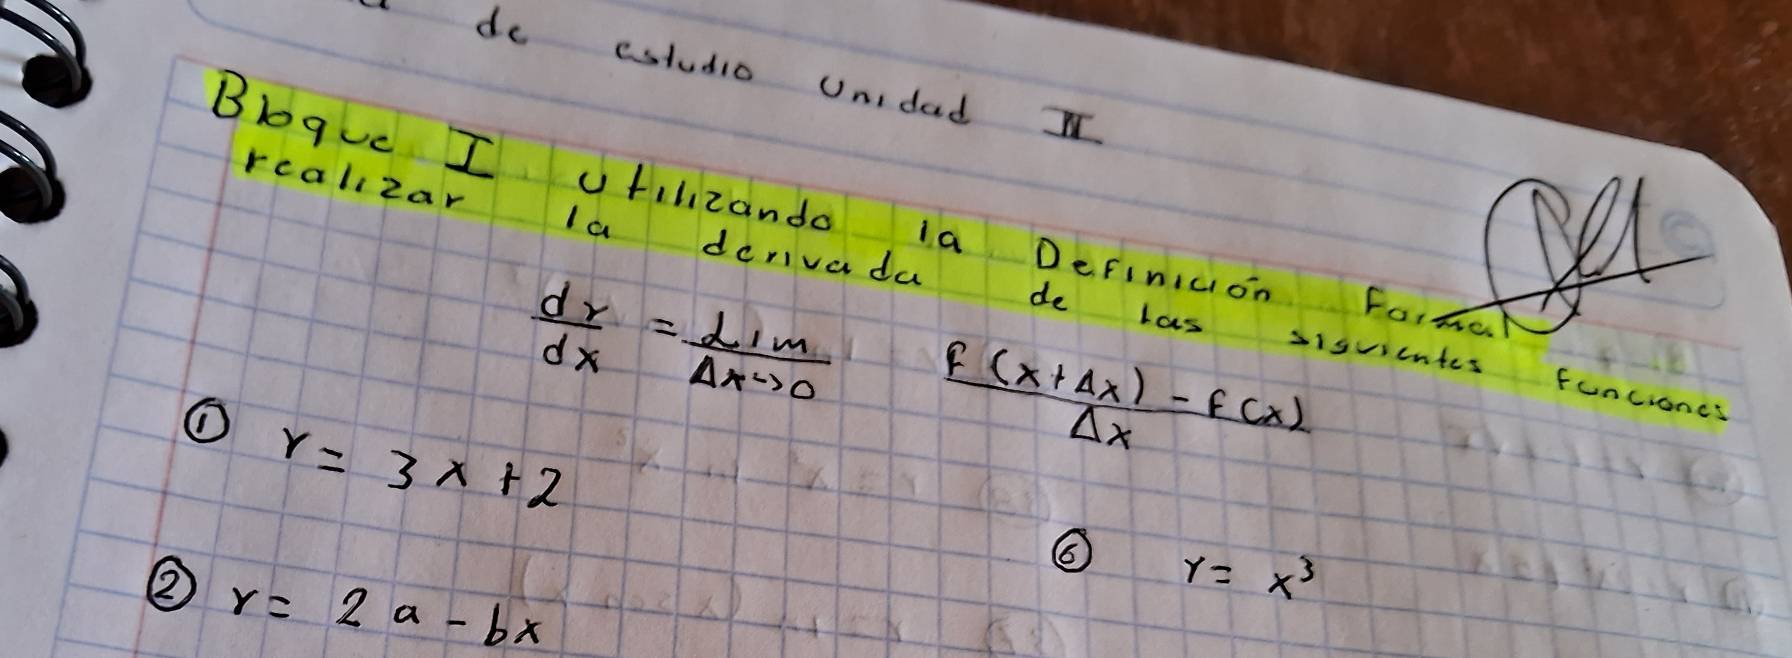 de estudio Unidad II
Bloque I utilizando la Definición Formal
realizar la derivada de las siguientes funciones
dy/dx = Lim Δx->0 F(x+Δx) - f(x) / Δx
① Y = 3x+2
⑥ Y = x³
② Y = 2a - bx